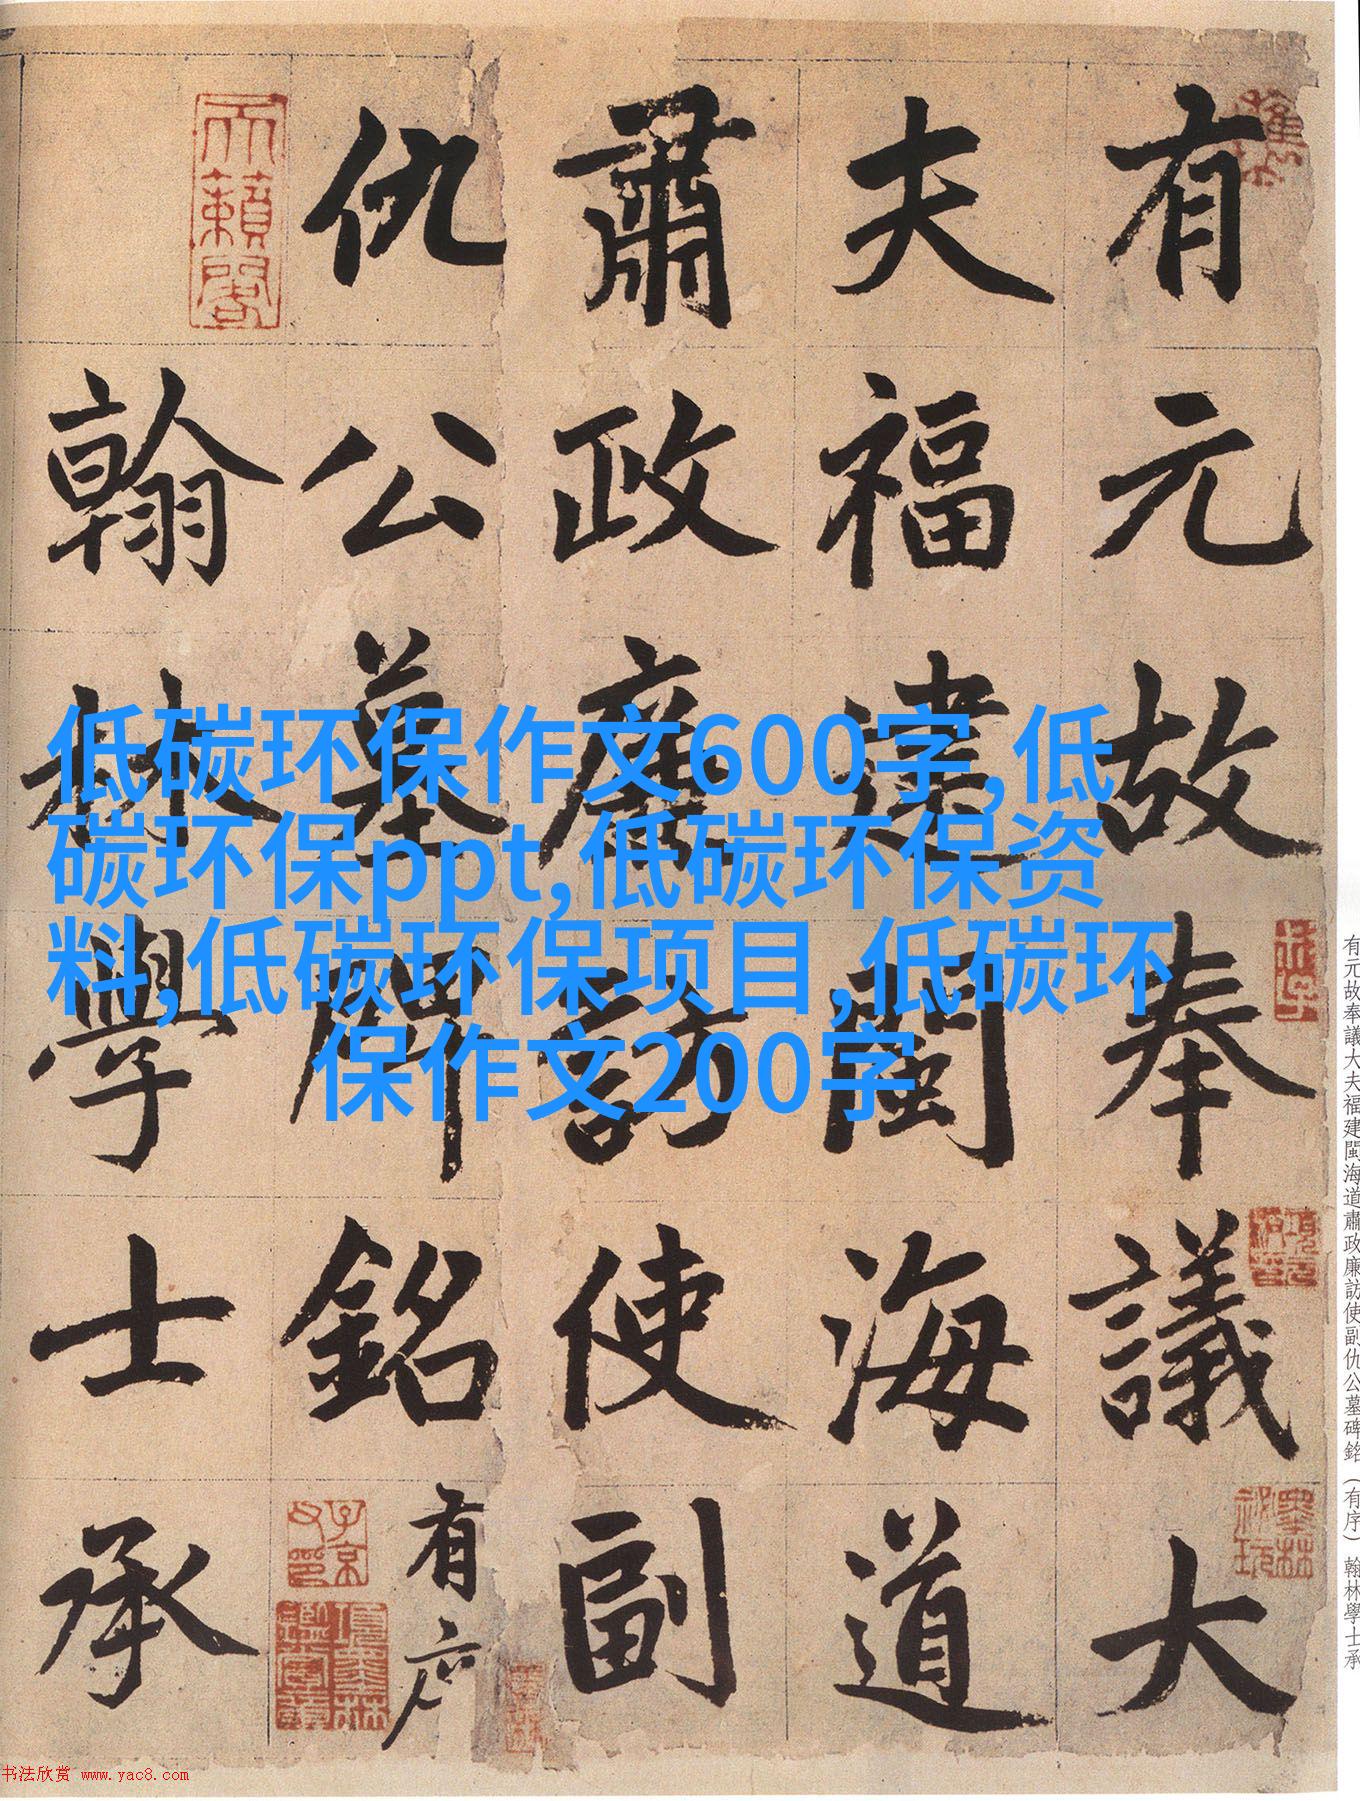 有元故奉議大
夫福建閩海道
肅政廉訪使副
仇公墓碑銘有序
翰林學士承
天籟閣
子京父印
項墨林鑑賞章
項元汴印
墨林祕玩
低碳环保作文600字,低
碳环保ppt,低碳环保资
料,低碳环保项目,低碳环
保作文200字
有元故奉議大夫福建閩海道肅政廉訪使副仇公墓碑銘（有序）翰林學士承
书法欣赏 www.yac8.com